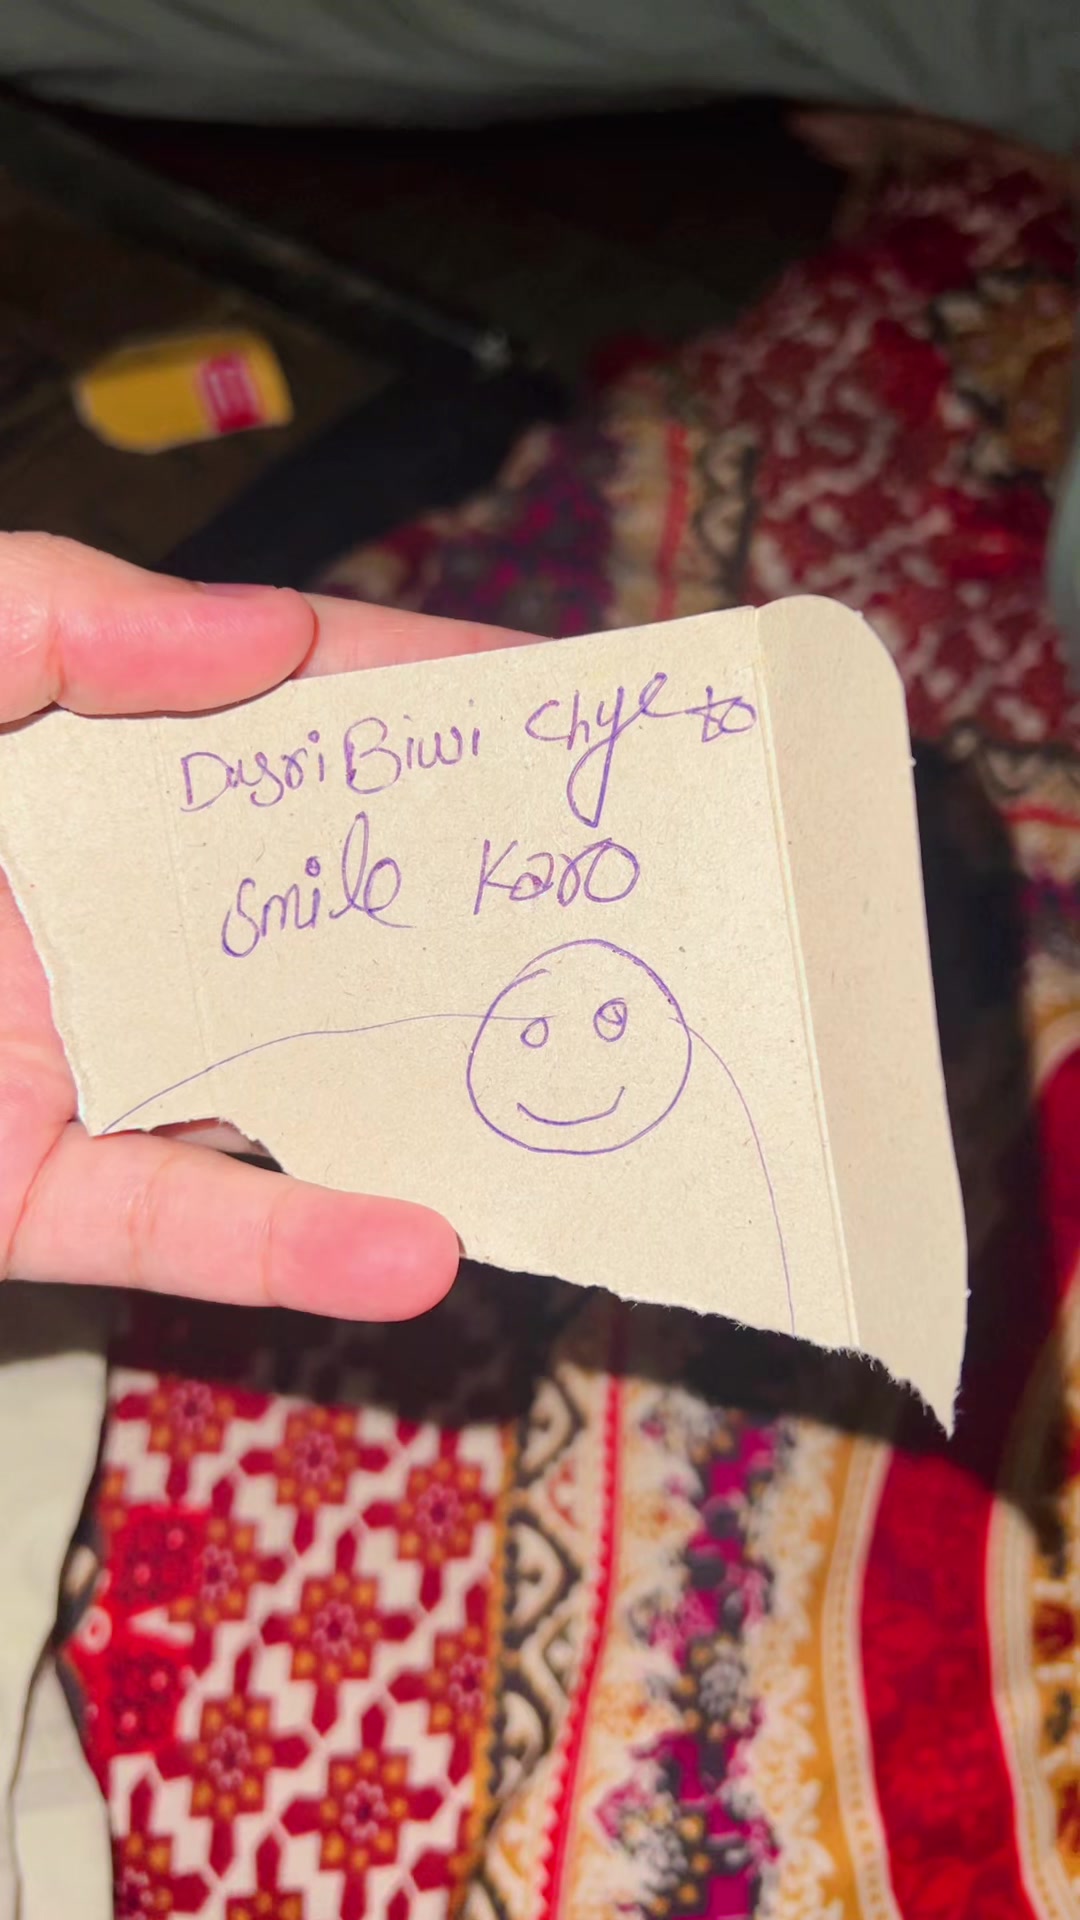 Dusri Biwi Chye to
Smile Karo